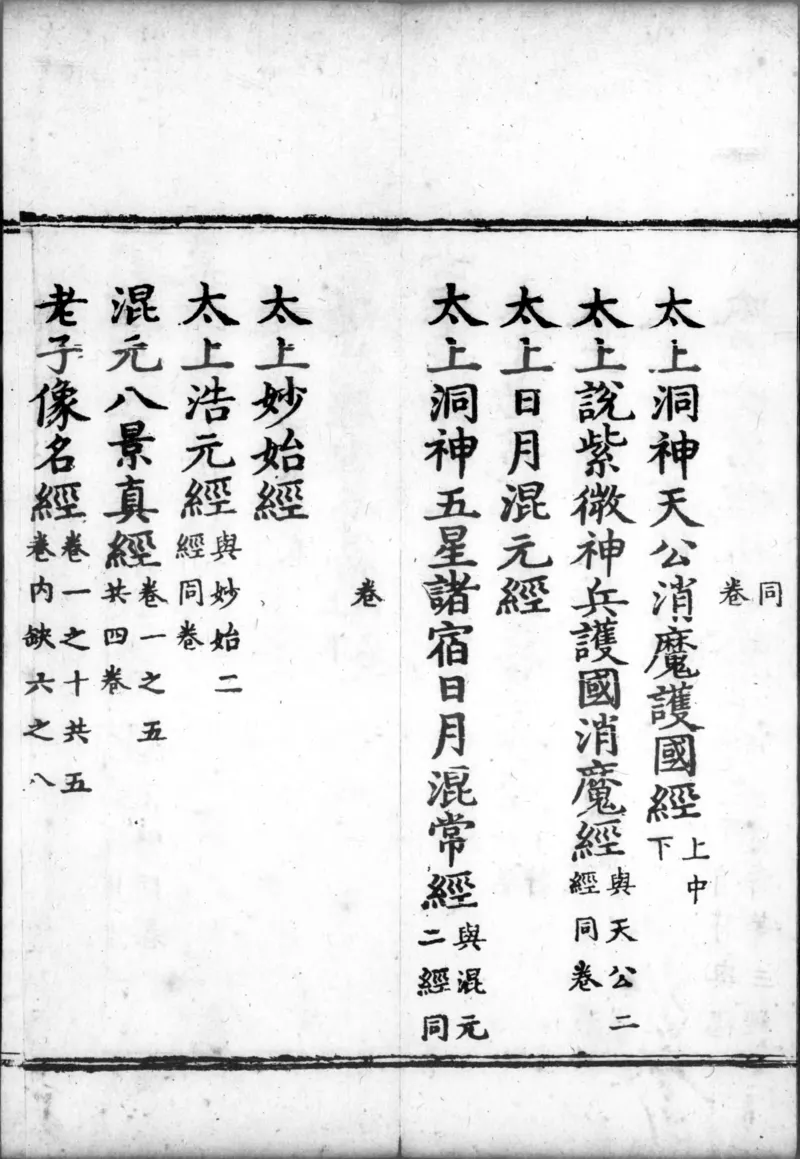 同卷
太上洞神天公消魔護國經上中下
太上說紫微神兵護國消魔經與天公二經同卷
太上日月混元經
太上洞神五星諸宿日月混常經與混元二經同
卷
太上妙始經
太上浩元經與妙始二經同卷
混元八景真經卷一之五共四卷
老子像名經卷一之十共五卷內缺六之八